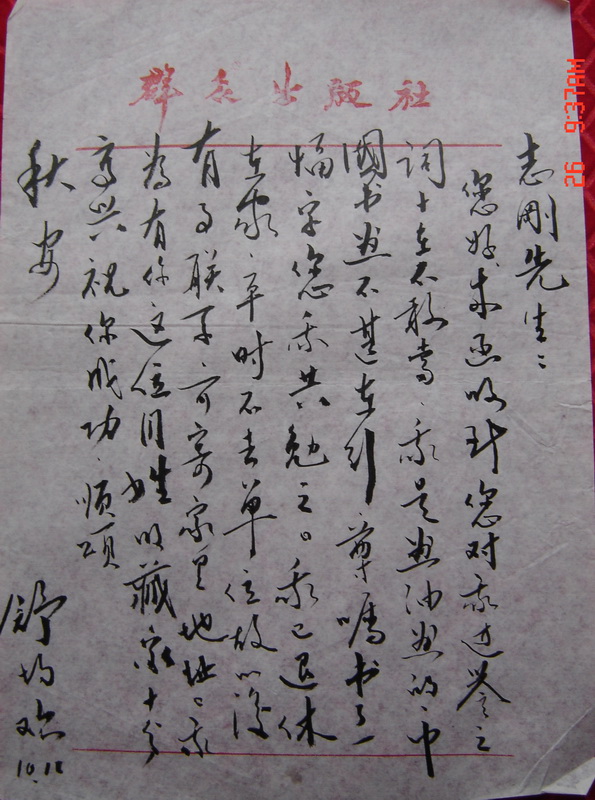 群众出版社
志刚先生：
您好，来函收到您对我过誉之
词实在不敢当，我是画油画的，中
國书画不甚在行，尊嘱书上一
幅字您我共勉之。我已退休
在家，平时不去单位故以后
有事联系可寄家里地址。我
为有你这位同姓的藏家十分
高兴祝你成功，顺颂
秋安
舒均欢
10.12
26 9:37AM